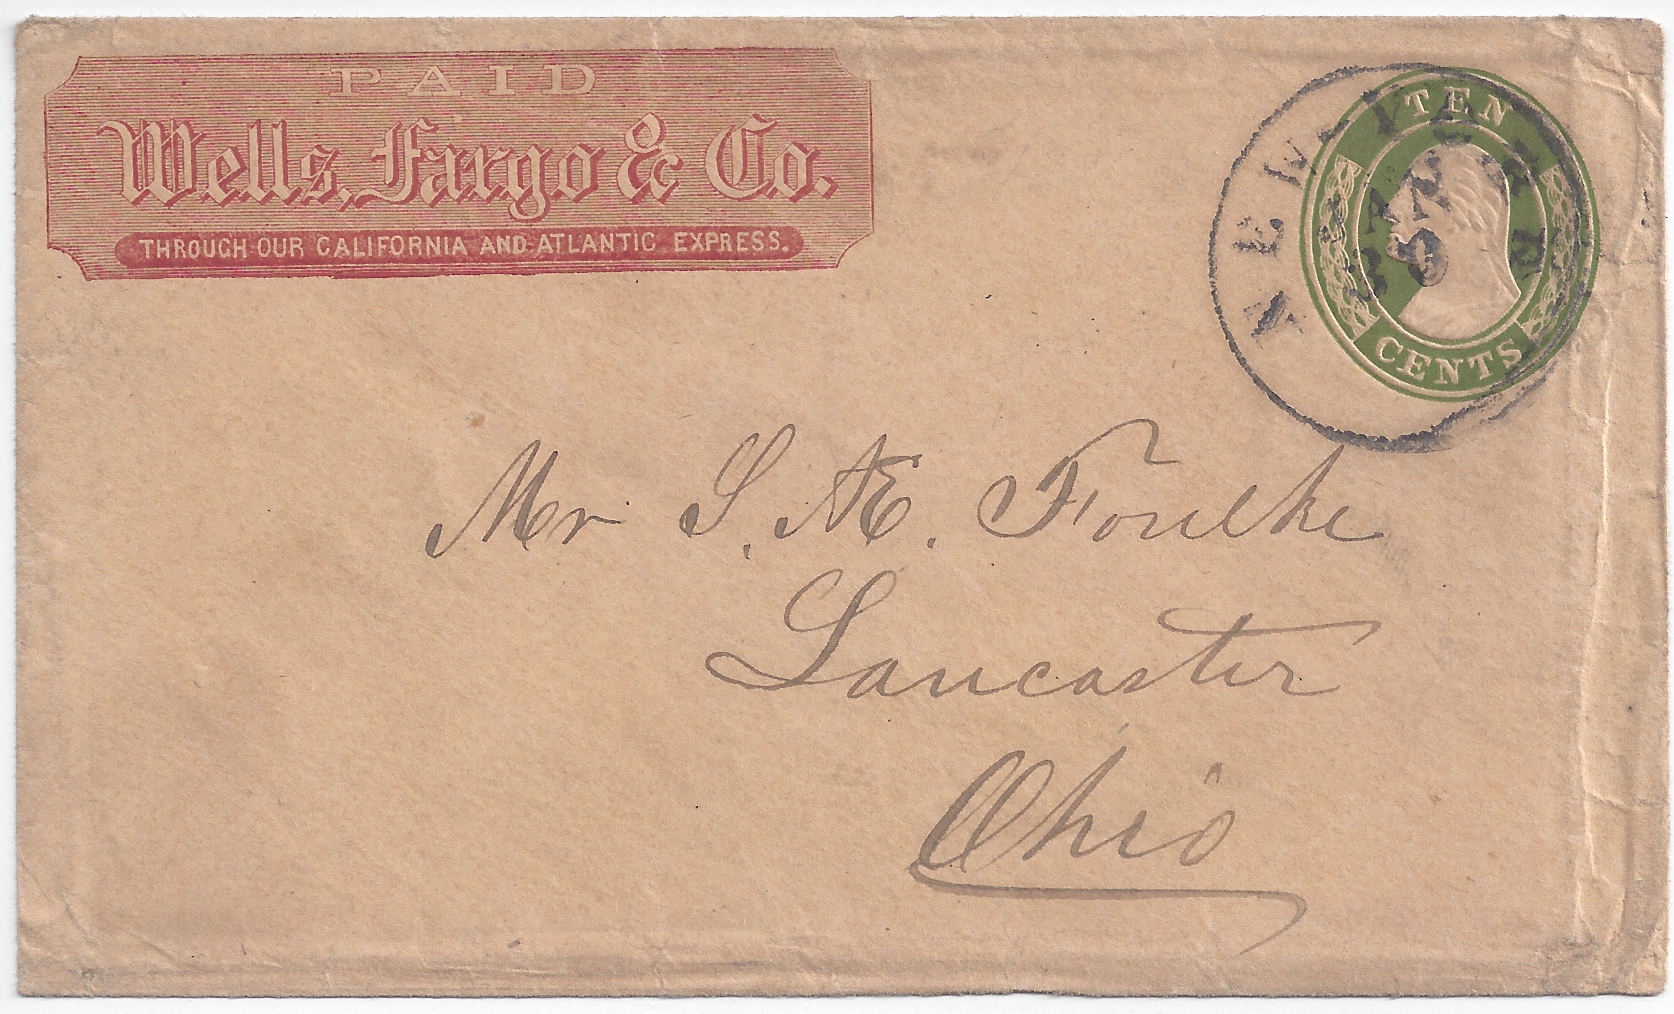 PAID
Wells, Fargo & Co.
THROUGH OUR CALIFORNIA AND ATLANTIC EXPRESS.
TEN
CENTS
NEW-YORK
Mr S. A. E. Foulke
Lancaster
Ohio